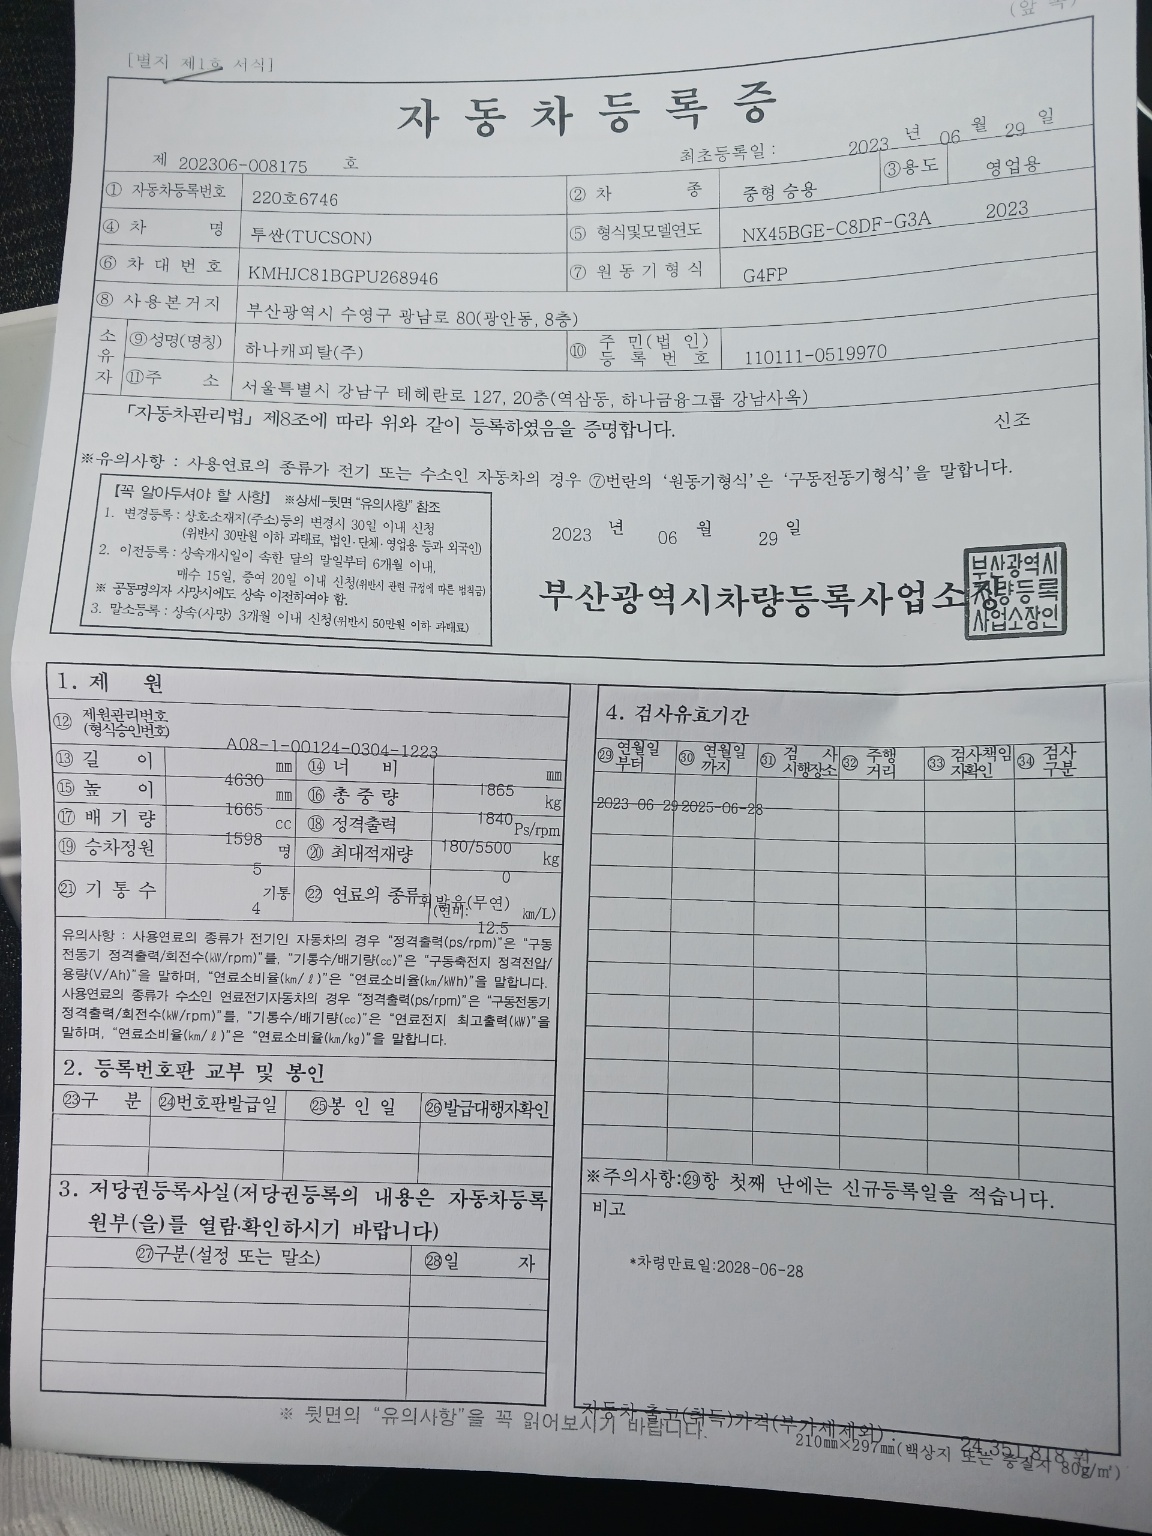 (앞 쪽)
[별지 제1호 서식]
자동차등록증
제 202306-008175 호
최초등록일 : 2023 년 06 월 29 일
① 자동차등록번호 220호6746 ② 차 종 중형 승용 ③용도 영업용
④ 차 명 투싼(TUCSON) ⑤ 형식및모델연도 NX45BGE-C8DF-G3A 2023
⑥ 차 대 번 호 KMHJC81BGPU268946 ⑦ 원 동 기 형 식 G4FP
⑧ 사 용 본 거 지 부산광역시 수영구 광남로 80(광안동, 8층)
소유자 ⑨성명(명칭) 하나캐피탈(주) ⑩ 주 민(법 인) 등 록 번 호 110111-0519970
⑪주 소 서울특별시 강남구 테헤란로 127, 20층(역삼동, 하나금융그룹 강남사옥)
「자동차관리법」 제8조에 따라 위와 같이 등록하였음을 증명합니다. 신조
※유의사항 : 사용연료의 종류가 전기 또는 수소인 자동차의 경우 ⑦번란의 '원동기형식'은 '구동전동기형식'을 말합니다.
【꼭 알아두셔야 할 사항】 ※상세-뒷면 "유의사항" 참조
1. 변경등록 : 상호소재지(주소)등의 변경시 30일 이내 신청
(위반시 30만원 이하 과태료, 법인·단체·영업용 등과 외국인)
2. 이전등록 : 상속개시일이 속한 달의 말일부터 6개월 이내,
매수 15일, 증여 20일 이내 신청(위반시 관련 규정에 따른 범칙금)
※ 공동명의자 사망시에도 상속 이전하여야 함.
3. 말소등록 : 상속(사망) 3개월 이내 신청(위반시 50만원 이하 과태료)
2023 년 06 월 29 일
부산광역시차량등록사업소장
부산광역시
차량등록
사업소장인
1. 제 원
⑫ 제원관리번호
(형식승인번호)
A08-1-00124-0304-1223
⑬ 길 이 4630 mm ⑭ 너 비 1865 mm
⑮ 높 이 1665 mm ⑯ 총 중 량 1840 kg
⑰ 배 기 량 1598 cc ⑱ 정격출력 180/5500 Ps/rpm
⑲ 승차정원 5 명 ⑳ 최대적재량 0 kg
㉑ 기 통 수 4 기통 ㉒ 연료의 종류 휘발유(무연)
(연비: 12.5 km/L)
유의사항 : 사용연료의 종류가 전기인 자동차의 경우 "정격출력(ps/rpm)"은 "구동
전동기 정격출력/회전수(kW/rpm)"를, "기통수/배기량(cc)"은 "구동축전지 정격전압/
용량(V/Ah)"을 말하며, "연료소비율(km/ℓ)"은 "연료소비율(km/kWh)"을 말합니다.
사용연료의 종류가 수소인 연료전기자동차의 경우 "정격출력(ps/rpm)"은 "구동전동기
정격출력/회전수(kW/rpm)"를, "기통수/배기량(cc)"은 "연료전지 최고출력(kW)"을
말하며, "연료소비율(km/ℓ)"은 "연료소비율(km/kg)"을 말합니다.
2. 등록번호판 교부 및 봉인
㉓구 분 ㉔번호판발급일 ㉕봉 인 일 ㉖발급대행자확인
3. 저당권등록사실(저당권등록의 내용은 자동차등록
원부(을)를 열람·확인하시기 바랍니다)
㉗구분(설정 또는 말소) ㉘일 자
4. 검사유효기간
㉙ 연월일 부터 ㉚ 연월일 까지 ㉛ 검 사 시행장소 ㉜ 주행 거리 ㉝ 검사책임 자확인 ㉞ 검사 구분
2023-06-29 2025-06-28
※주의사항:㉙항 첫째 난에는 신규등록일을 적습니다.
비고
*차령만료일:2028-06-28
자동차 출고(취득)가격(부가세제외) : 24,351,818 원
※ 뒷면의 "유의사항"을 꼭 읽어보시기 바랍니다.
210㎜×297㎜(백상지 또는 중질지 80g/㎡)